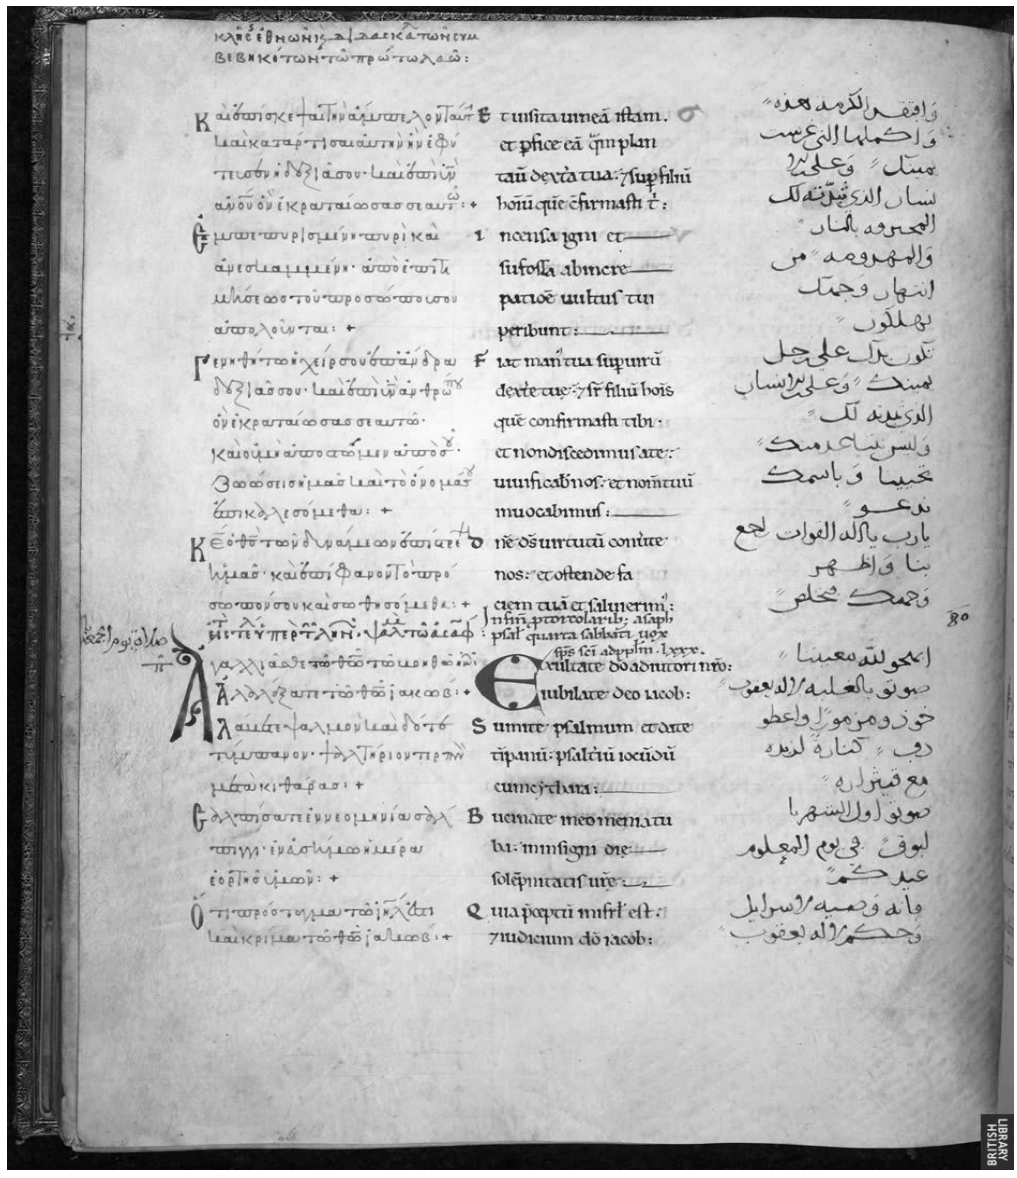 Καὶ ἐπίσκεψαι τὴν ἄμπελον ταύτην
καὶ κατάρτισαι αὐτὴν ἣν ἐφυ
ἀνου ὃν ἐκραταίωσας σεαυτῶ: +
Ἐμπεπυρισμένη πυρὶ καὶ
ἀνεσκαμμένη· ἀπὸ ἐπιτι
μήσεως τοῦ προσώπου σου
ἀπολοῦνται: +
Γενηθήτω ἡ χείρ σου ἐπ ἄνδρα
ὃν ἐκραταίωσας σεαυτῶ·
ζωώσεις ἡμᾶς καὶ τὸ ὄνομά σου
ἐπικαλεσόμεθα: +
ἡμᾶς· καὶ ἐπίφανον τὸ πρό
σωπόν σου καὶ σωθησόμεθα: +
Ἀγαλλιᾶσθε τῶ θῶ τῶ βοηθῶ ἡμῶν
Ἀλαλάξατε τῶ θῶ ἰακώβ: +
Λάβετε ψαλμὸν καὶ δότε
τύμπανον· ψαλτήριον τερπνὸν
μετὰ κιθάρας: +
Σαλπίσατε ἐν νεομηνία σάλ
πιγγι· ἐν εὐσήμω ἡμέρα
ἑορτῆς ἡμῶν: +
Ὅτι πρόσταγμα τῶ ιηλ ἐστι
καὶ κρίμα τῶ θῶ ἰακώβ: +
Et uisita uineā istam.
et pfice eā q̄m plan
tau̅ dext̄a tua: ⁊ sup filiū
hoīs quē c̄firmasti t̄:
incensa igni et
suffossa ab incre
patioē uultus tui
peribunt:
Fiat man' tua sup uirū
dext̄e tuę: ⁊ sr̄ filiū hoīs
quē confirmasti tibi:
et non discedimus a te:
uiuificab̄ nos: et nom̄ tuū
inuocabimus:
Dn̄e ds̄ uirtutū conu̓te
nos: et ostende fa
ciem tuā et salui erim':
In finē p torcolarib; asaph
psal' quarta sabbati uox
sps̄ sc̄i ad pplm̄ . lxxx.
Exultate do adiutori nr̄o:
iubilate deo iacob:
Sumite psalmum et date
tīpanū: psalt̄iū iocūdū
cum cythara:
Bucinate in neomenia tu
ba: in insigni die
solēpnitatis ur̄ę:
Quia p̄ceptū in isrl' est:
⁊ iudicium dō iacob:
صلاة يوم الجمعة
وافتقد الكرمة هذه
واكملها التي غرست
يمينك وعلي
انسان الذي ثبّته لك
المحترقه بالنار
والمهدومه من
انتهار وجهك
يهلكون
تكون يدك علي رجل
يمينك وعلي انسان
الذي ثبته لك
وليس نتباعد منك
تحيينا وباسمك
ندعو
يارب يااله القوات ارجع
بنا واظهر
وجهك نخلص
ابتهجو لله معيننا
خوذو مزمورا واعطو
دف كنارة لذيذه
مع قيثاره
صوتو اول الشهر با
لبوق في يوم المعلوم
عيدكم
فانه وصيه لاسراييل
وحكم لاله يعقوب
80
BRITISH
LIBRARY